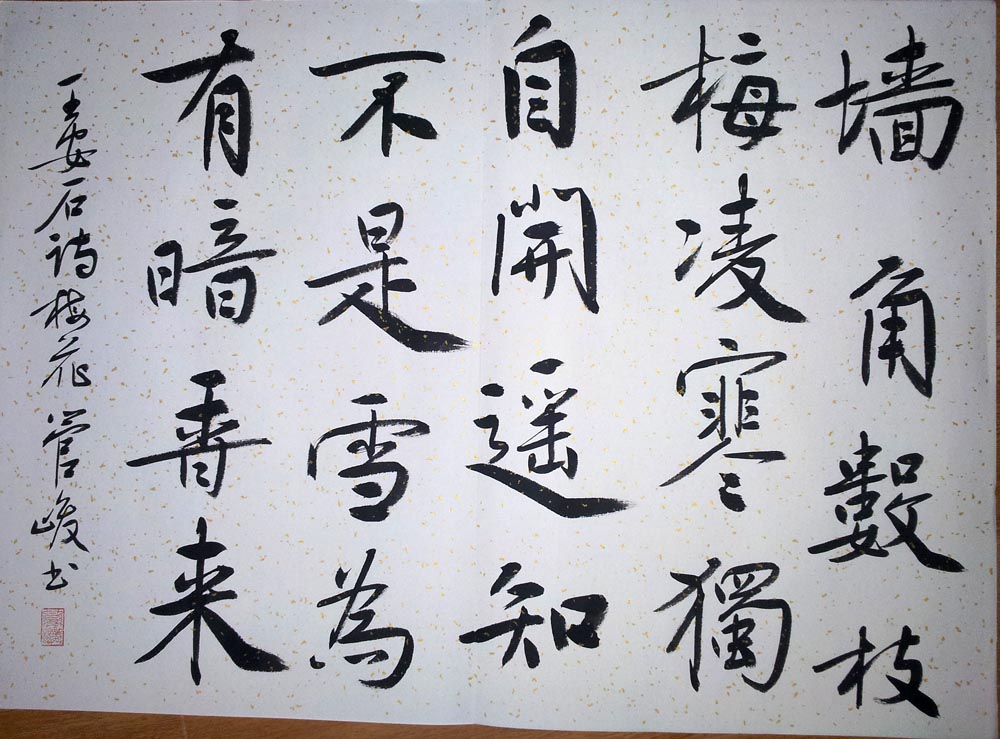 墙角數枝
梅凌寒獨
自開遥知
不是雪為
有暗香来
王安石诗梅花管峻书